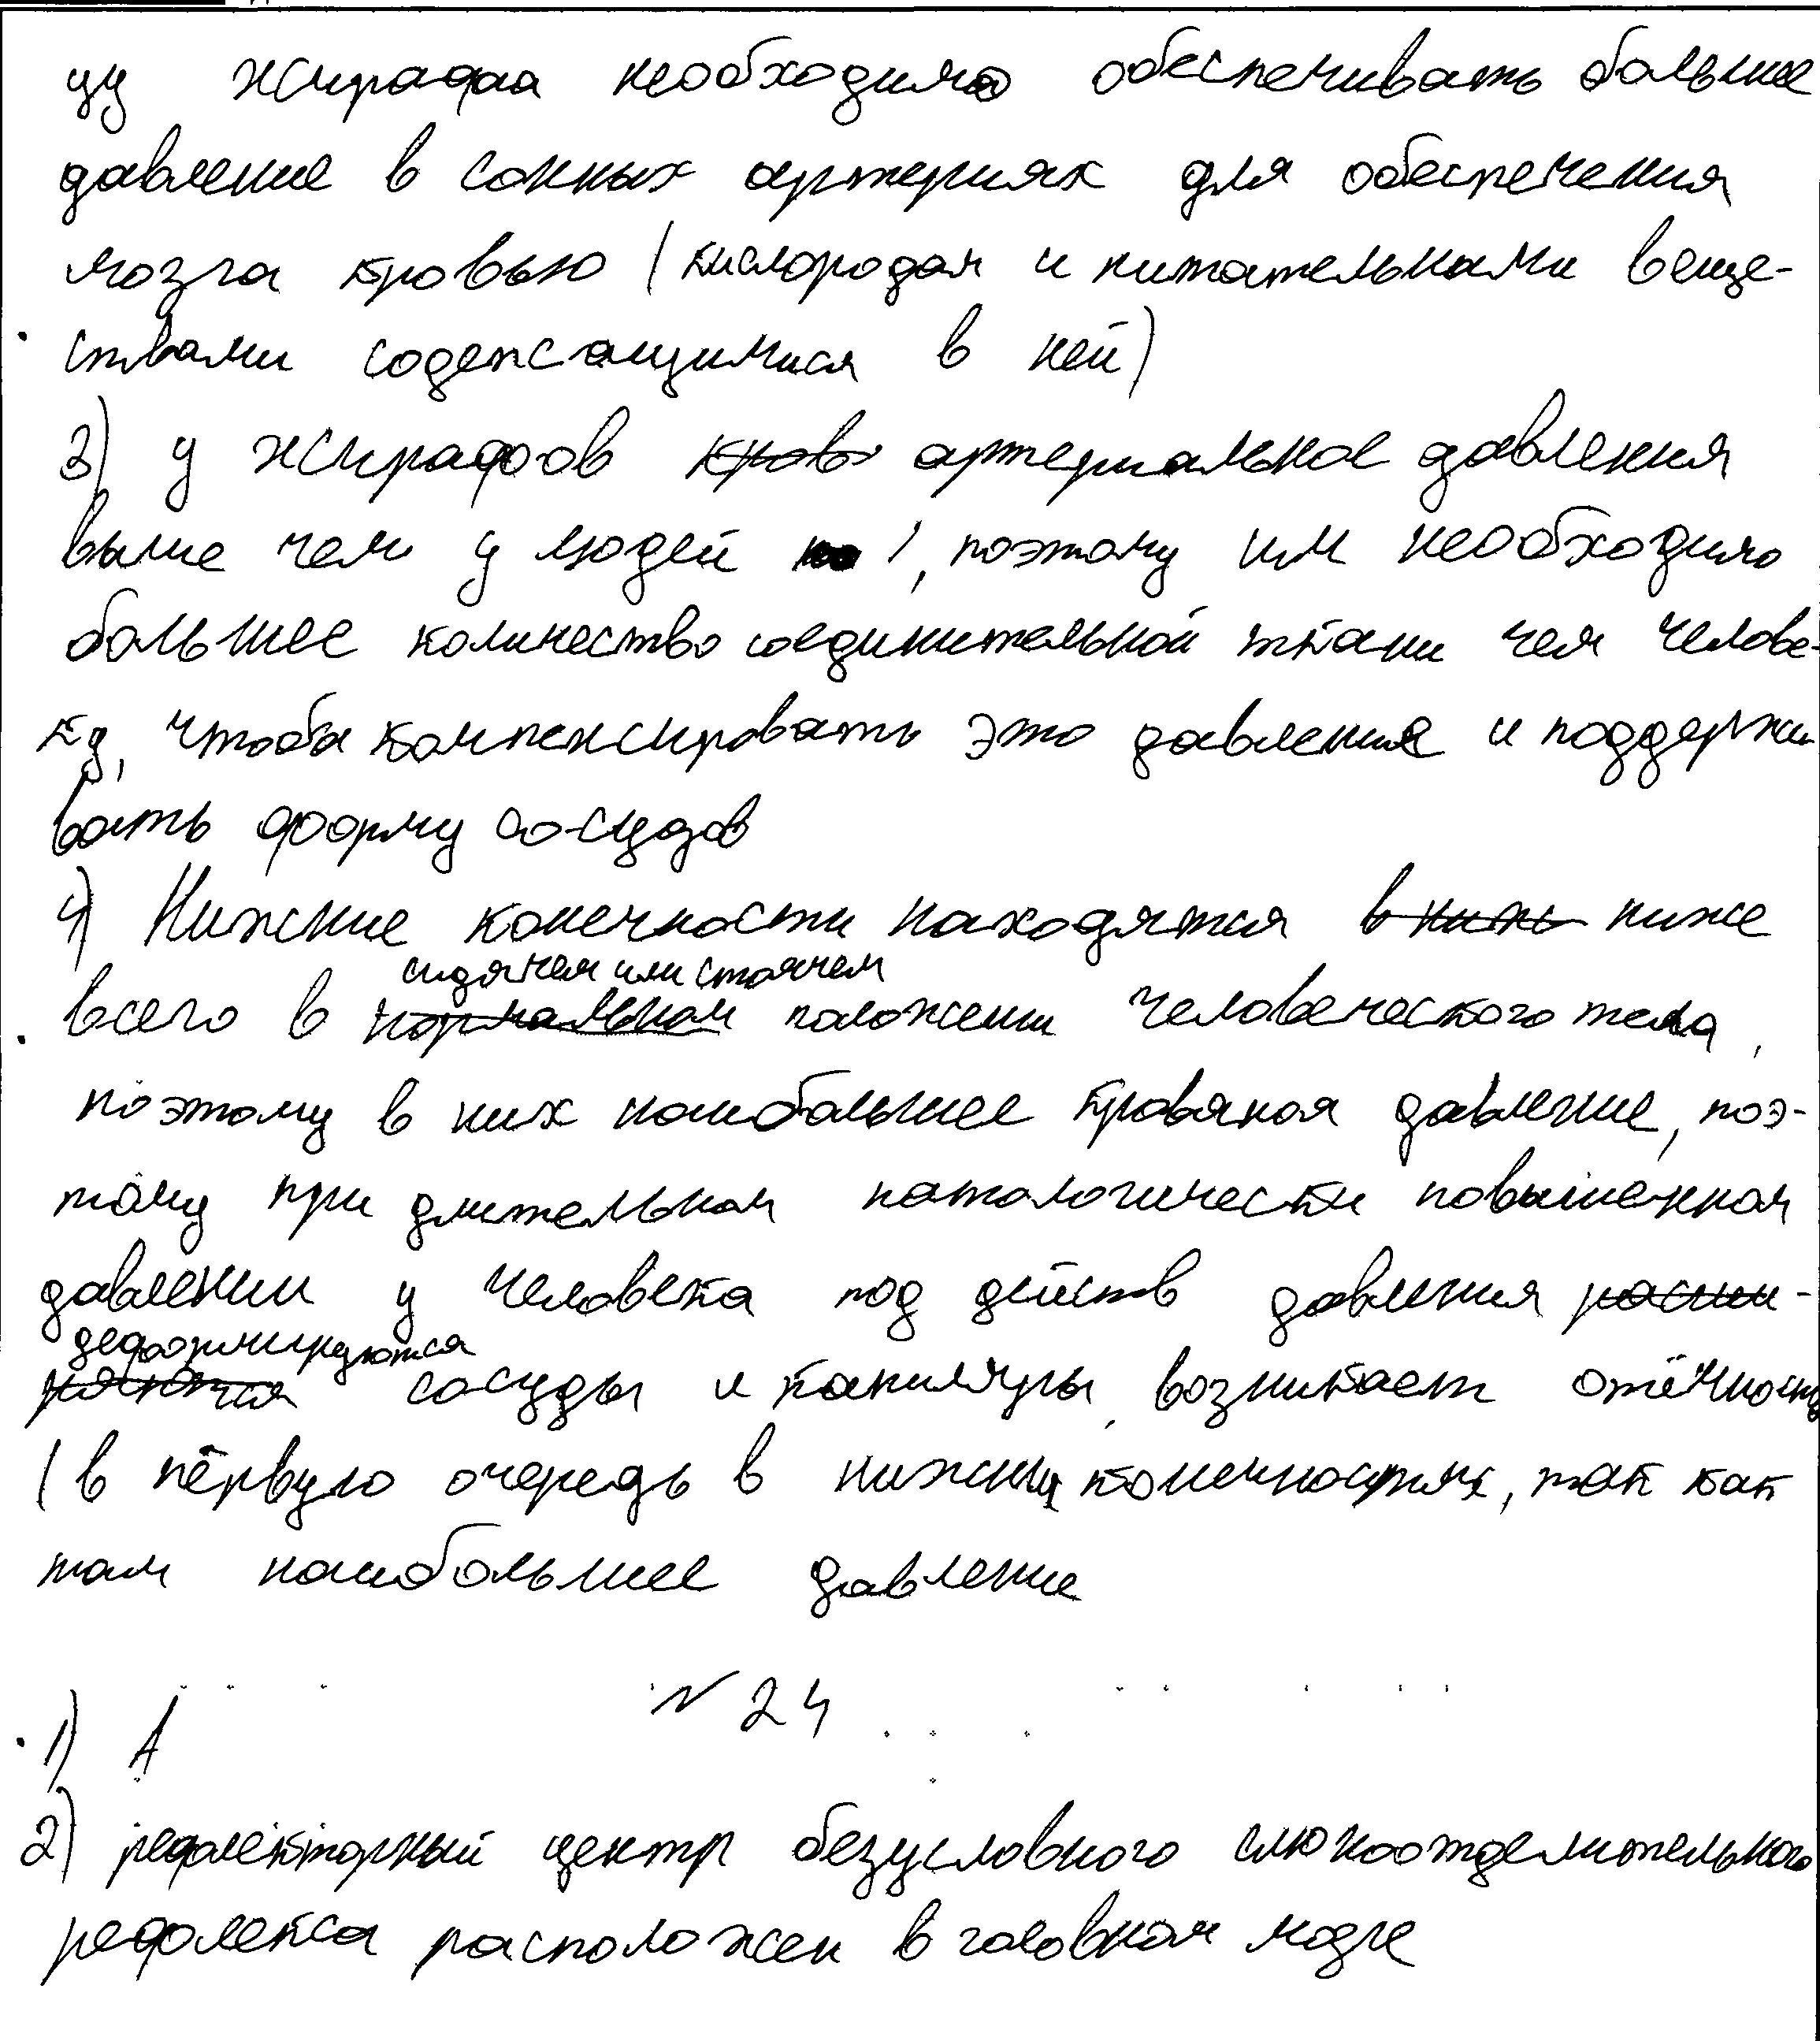 цу жирафа необходимо обеспечивать большее
давление в сонных артериях для обеспечения
мозга кровью (кислородом и питательными веще-
ствами содержащимися в ней)
3) у жирафов кровь артериальное давления
выше чем у людей, поэтому им необходимо
большее количество соединительной ткани чем челове-
ку, чтобы компенсировать это давление и поддержи
вать форму сосудов
4) Нижние конечности находятся в ниж ниже
сидячем или стоячем
всего в нормальном положении человеческого тела,
поэтому в них наибольшее кровяное давление, поэ-
тому при длительном патологически повышенном
давлении у человека под действ давления расши-
деформируются
ряются сосуды и капиляры, возникает отёчность
(в первую очередь в нижних конечностях, так как
там наибольшее давление
№ 24
1) А
2) рефлекторный центр безусловного слюноотделительного
рефлекса расположен в головном мозге